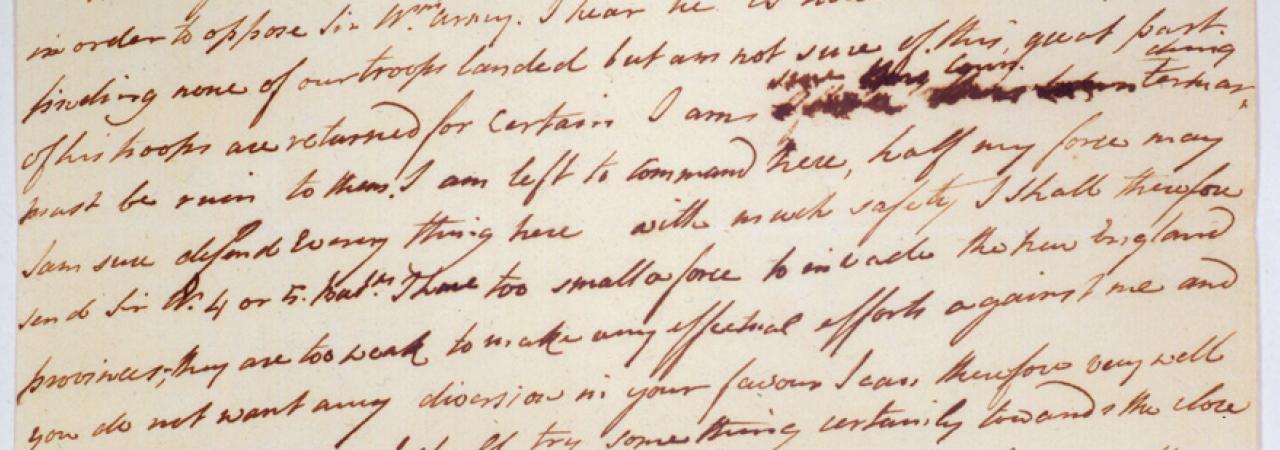 in order to oppose Sir Wm's Army. I hear he is
finding none of our troops landed but am not sure of this, great part
of his troops are returned for certain I am sure this countermarching
must be ruin to them. I am left to command here, half my force may
I am sure defend Every thing here with much safety I shall therefore
send Sir W. 4 or 5. Batns I have too small a force to invade the New England
provinces, they are too weak to make any effectual efforts against me and
you do not want any diversion in your favour I can therefore very well
try something certainly towards the close